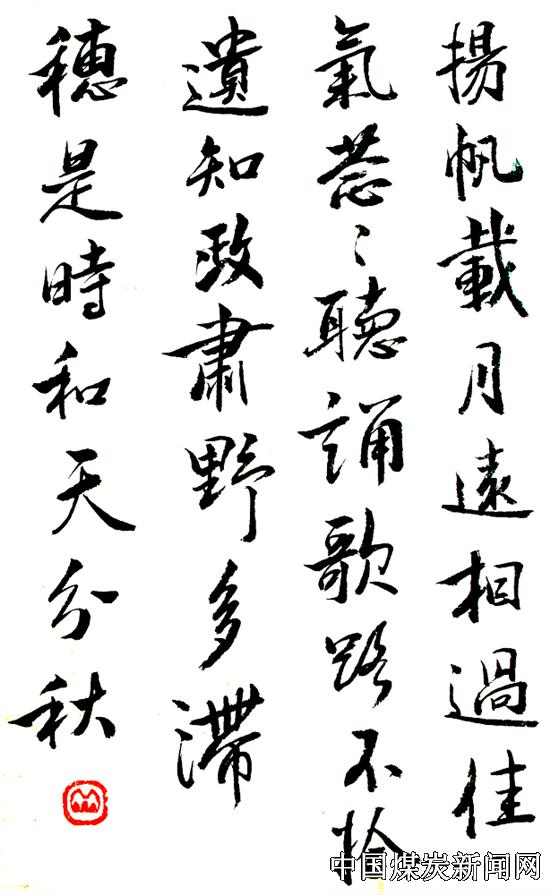 揚帆載月遠相過佳
氣葱〻聽誦歌路不拾
遺知政肅野多滯
穗是時和天分秋
中国煤炭新闻网